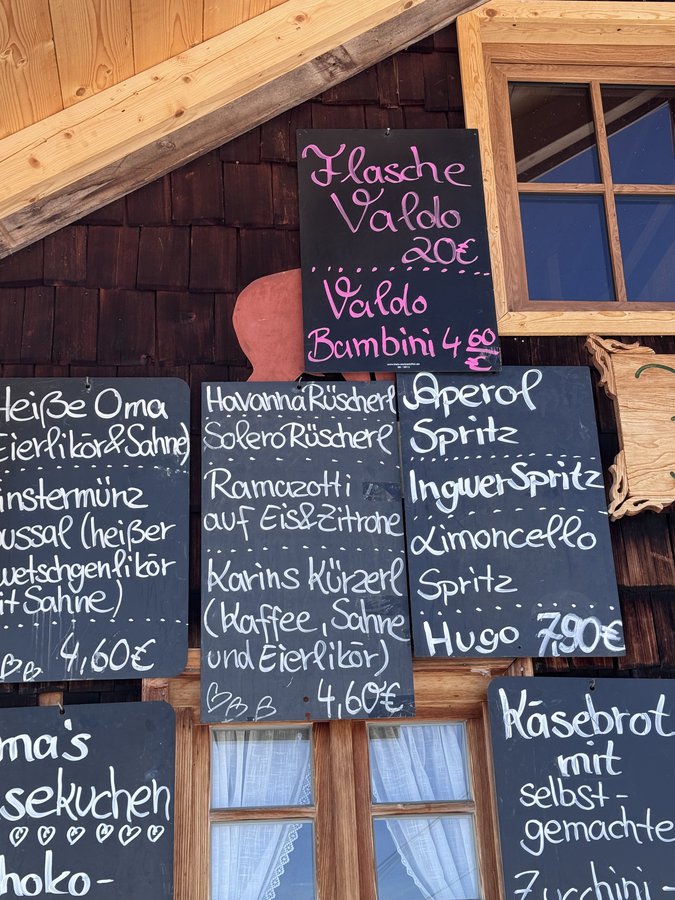 Flasche
Valdo
20€
Valdo
Bambini 4 60 €
Heiße Oma
Eierlikör & Sahne)
instermünz
ussal (heißer
wetschgenlikör
it Sahne)
4,60€
Havanna Rüscherl
Solero Rüscherl
Ramazotti
auf Eis & Zitrone
Karins Kürzerl
(Kaffee, Sahne
und Eierlikör)
4,60€
Aperol
Spritz
Ingwer Spritz
Limoncello
Spritz
Hugo 7,90€
ma's
sekuchen
hoko-
Käsebrot
mit
selbst-
gemachte
Zucchini-